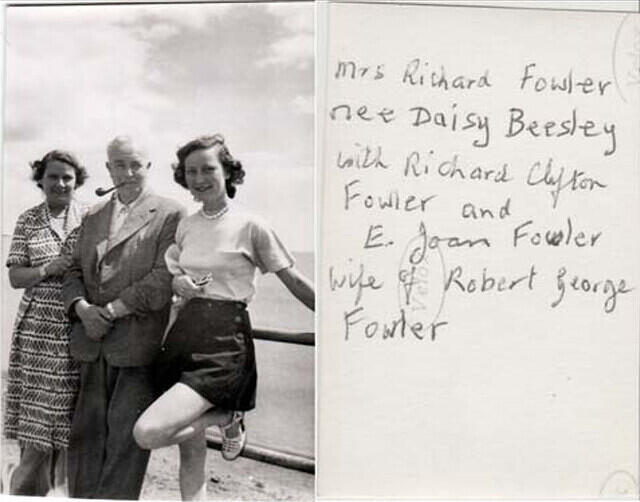 Mrs Richard Fowler
nee Daisy Beesley
with Richard Clifton
Fowler and
E. Joan Fowler
wife of Robert George
Fowler
Velox